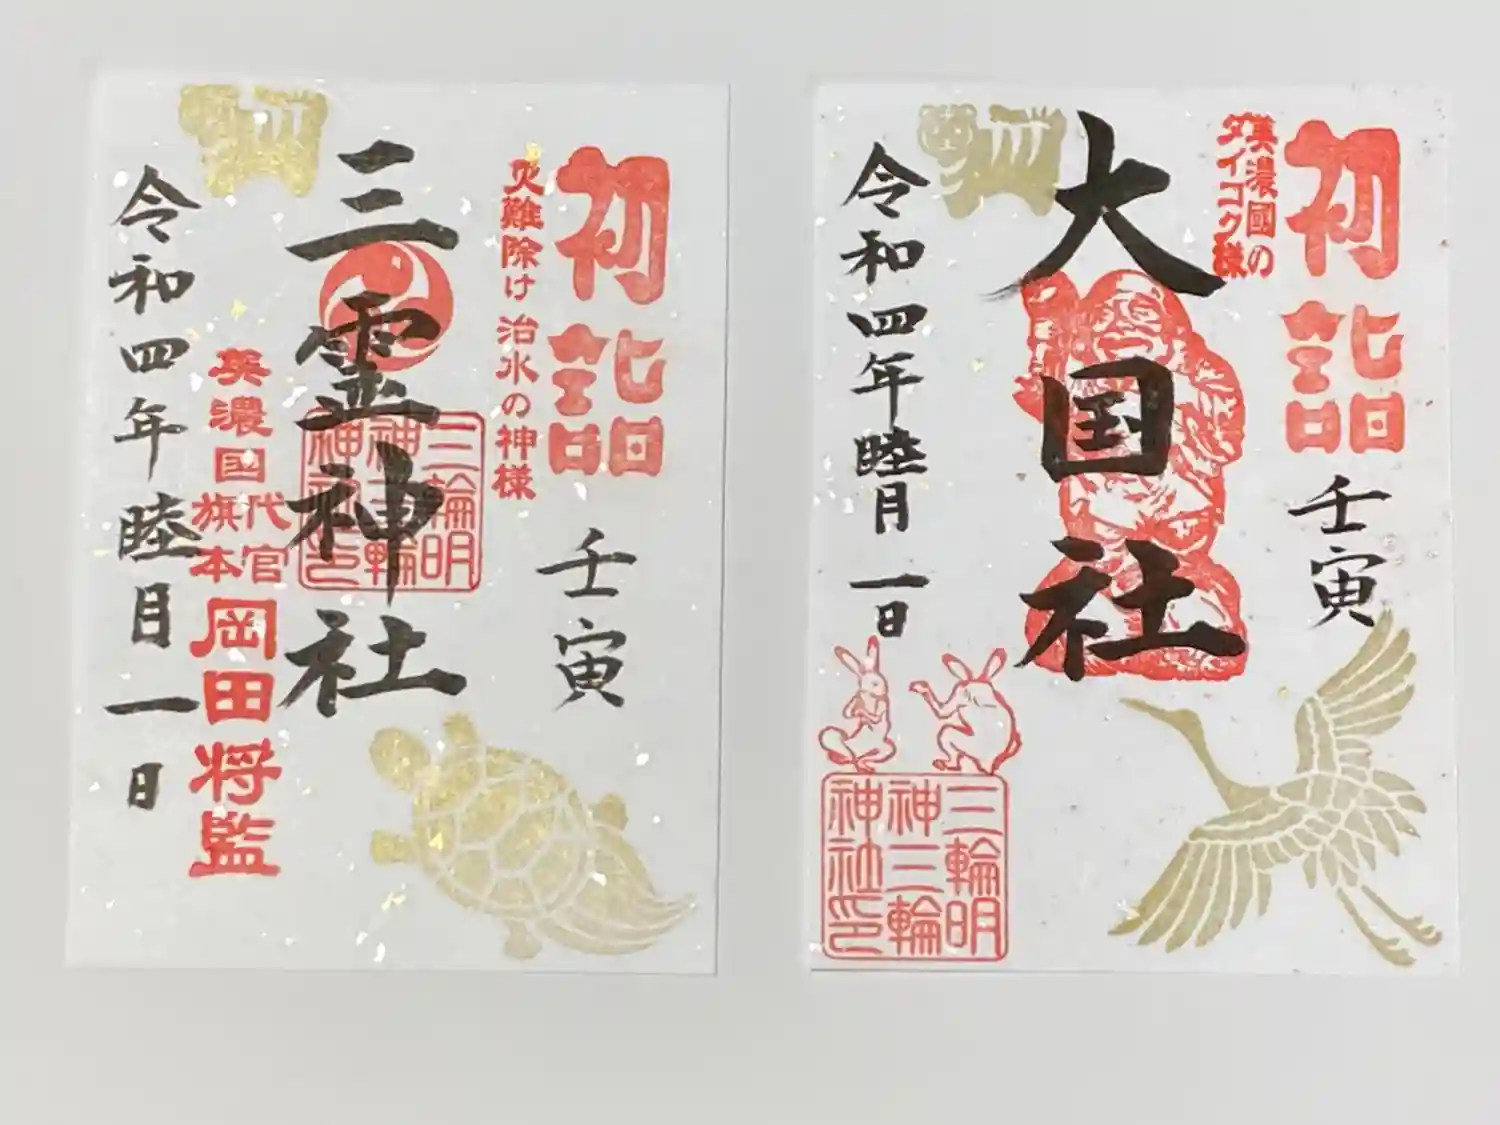 初詣
壬寅
災難除け 治水の神様
三霊神社
三輪明
神三輪
神社印
美濃国
代官
旗本
岡田将監
令和四年睦月一日
初詣
壬寅
美濃國の
ダイコク様
大国社
令和四年睦月一日
三輪明
神三輪
神社印